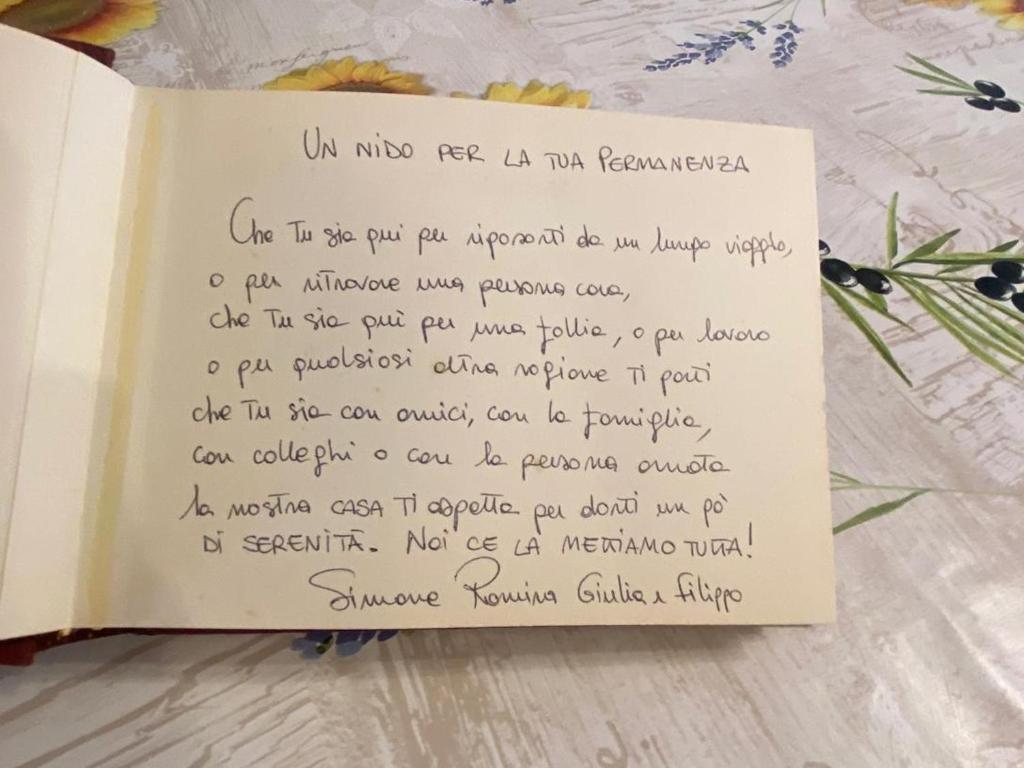 UN NIDO PER LA TUA PERMANENZA
Che Tu sia qui per riposarti da un lungo viaggio,
o per ritrovare una persona cara,
che Tu sia quì per una follia, o per lavoro
o per qualsiasi altra ragione Ti porti
che Tu sia con amici, con la famiglia,
con colleghi o con la persona amata
la nostra CASA Ti aspetta per darti un pò
DI SERENITÀ. NOI CE LA METTIAMO TUTTA!
Simone Romina Giulia e Filippo